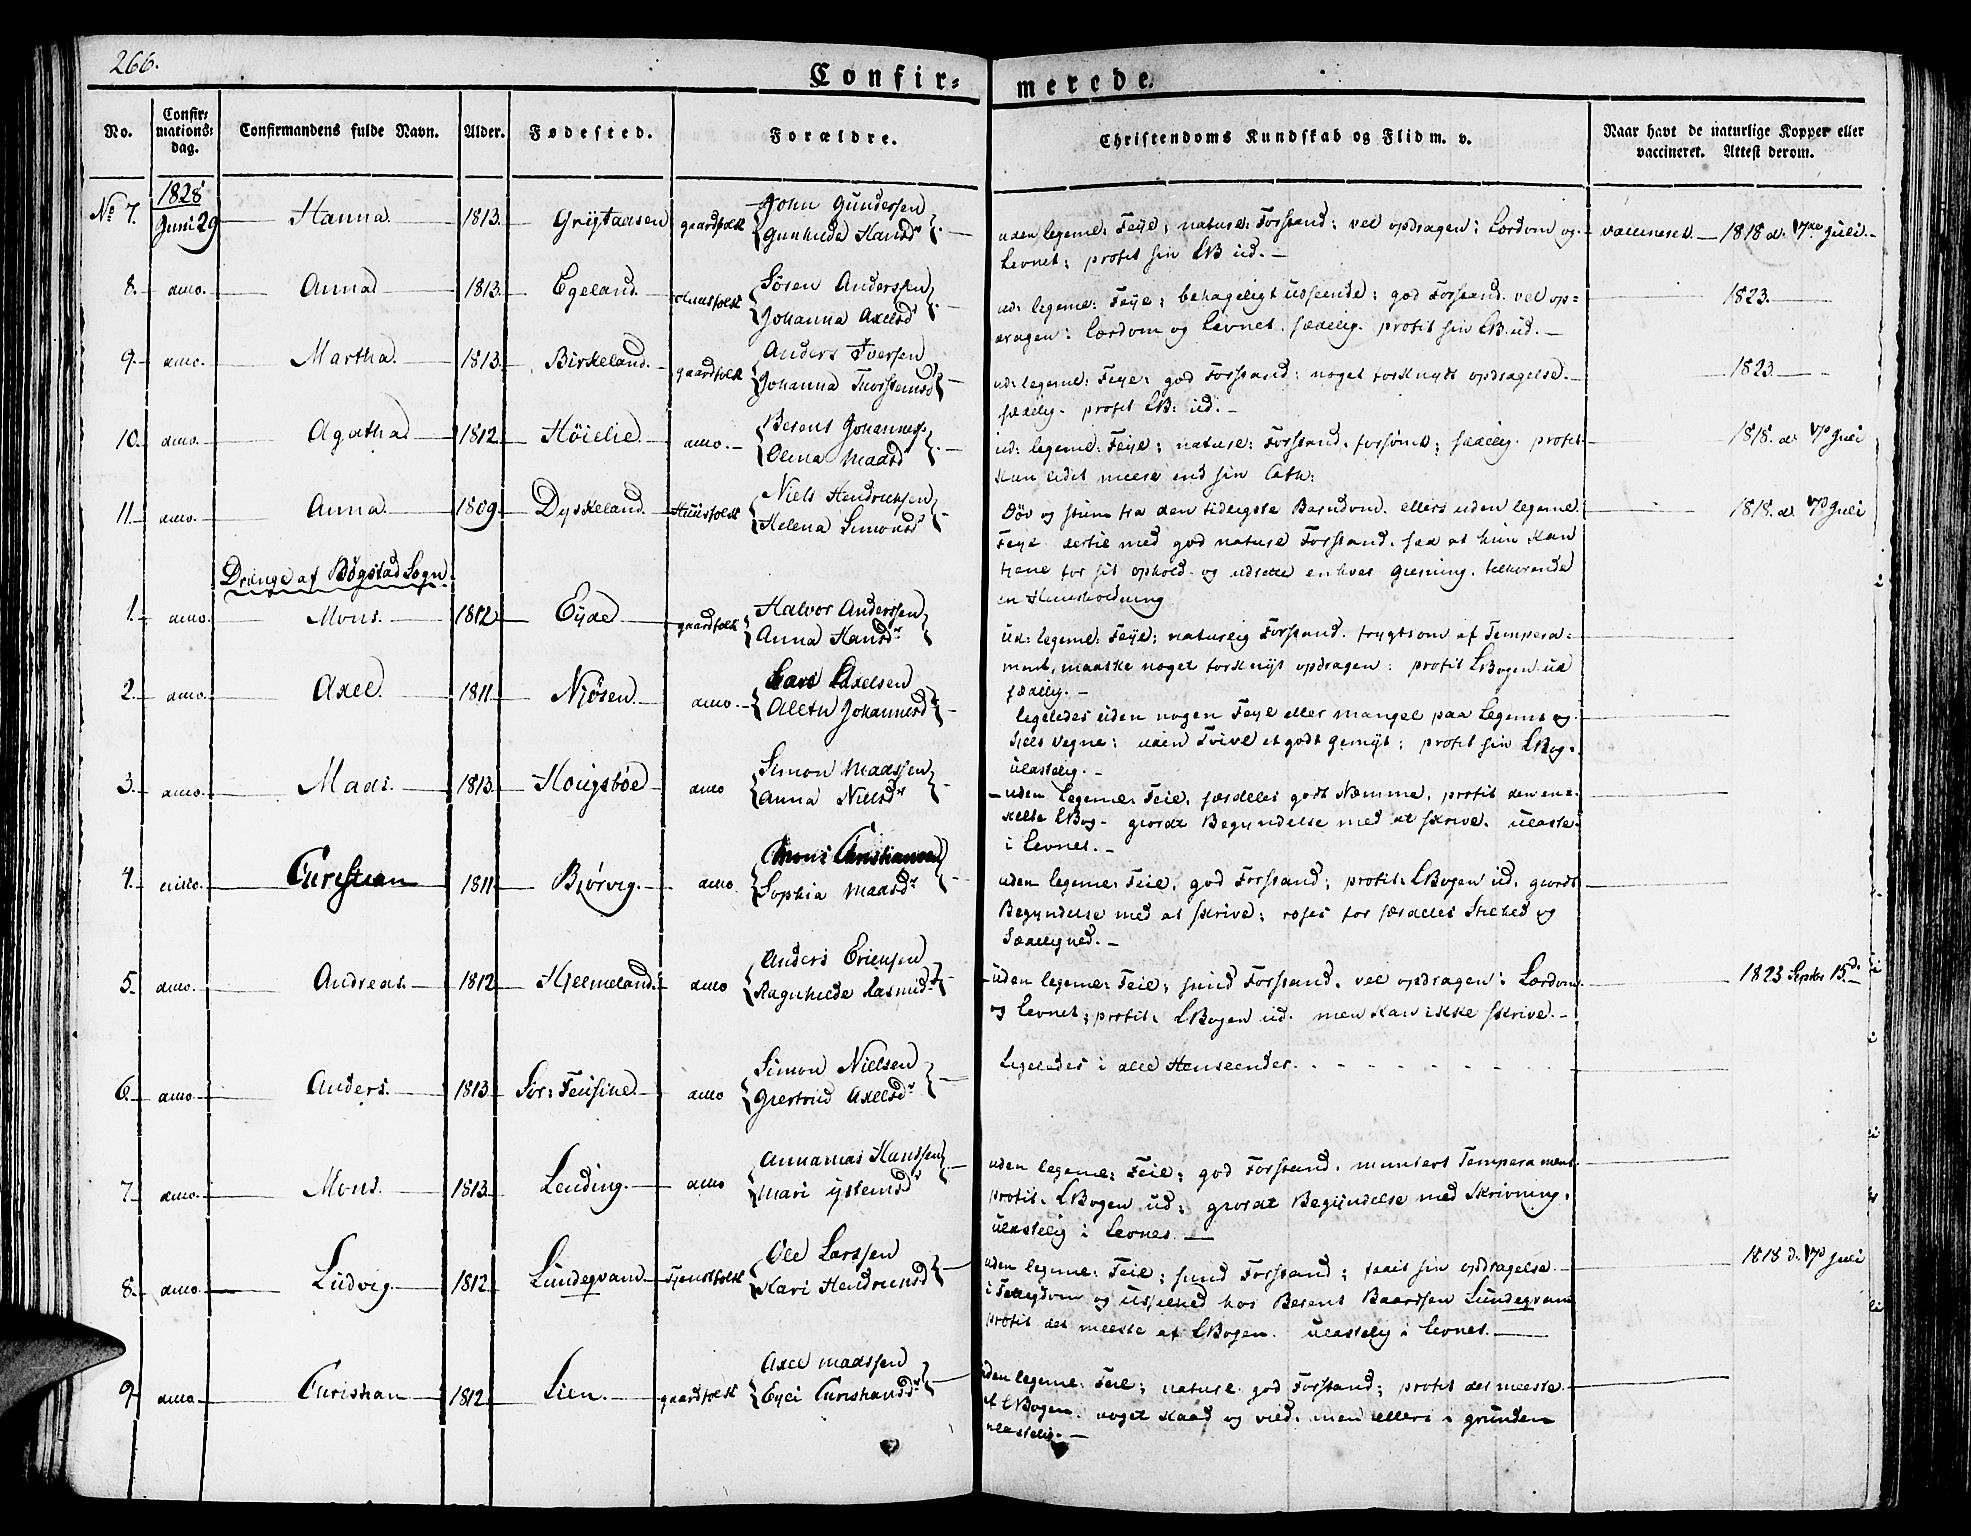 266.
Confir=
merede.
No.
Confir=
mations=
dag.
Confirmandens fulde Navn.
Alder.
Fødested.
Forældre.
Christendoms Kundskab og Flid m. v.
Naar havt de naturlige Kopper eller
vaccineret. Attest derom.
1828
No 7. Juni 29 Hanna. 1813. gaardfolk John Gundersen
Gunhilde Hansdr
uden legeml: Feyl; naturl: Forstand; vel opdragen; Lærdom og
Levnet; profit sin LB ud.
vaccineret 1818 d. 17de Juli.
8. dito. Anna 1813. Egeland. Søren Anderssen
Johanna Axelsdr
ud: legeml: Feyl; behageligt Udseende; god Forstand. vel op=
dragen: Lærdom og Levnet. sædelig. profit sin LB. ud.
1823.
9. dito. Martha. 1813. Birkeland. gaardfolk Anders Iversen
Johanna Thorstensdr
ud: legeml: Feyl; god Forstand; noget forknydt opdragelse.
sædelig. profit LB: ud.
1823.
10. dito. Agatha 1812. Høielie. dito. Berent Johanness.
Olina Madsdr
ud: legeml: Feyl; naturl: Forstand, forsømt; sædelig. profit
kun lidet meere end sin Cath:
1818. d. 17d Juli
11. dito. Anna. 1809. Dyskeland. Huusfolk Niels Hendrichsen
Helena Simonsdr
Døv og stum fra den tidligste Barndom. ellers uden legeml.
Feyl. dertil med god naturl Forstand. saa at hun kan
tjene for sit ophold og udrette enhver Gierning, tilhørende
en Huusholdning
1818. d. 17d Juli
Drænge af Bøgstad Sogn.
1. dito. Mons. 1812. Eyde. gaardfolk Halvor Anderssen
Anna Hansdr
ud: legeml: Feyl; naturlig Forstand. frygtsom af Tempera=
ment, maaske noget forknyt opdragen: profit LBogen ud
sædelig.
2. dito. Axel. 1811. Njøsen. dito. Lars Axelsen
Johannesdr
ligeledes uden nogen Feyl eller mangel paa Legems og
Siels Vegne; uden Tvivl et godt Gemyt; profit sin LBog.
ulastelig.
3. dito. Mads. 1813. Hougsbøe dito Simon Madssen
Anna Nielsdr
uden legeml: Feil, særdeles godt Nemme, profit den en=
kelte LBog. giordt Begyndelse med at skrive. ulaste.
i Levnet.
4. dito. Christian 1811. Bjørvig. dito. Mons Christiansen
Sophia Madsdr
uden legeml: Feil, god Forstand; profit: LBogen ud. giordt
Begyndelse med at skrive; roses for særdeles Stilhed og
Sædelighed.
5. dito. Andreas. 1812 Hjelmeland. dito Anders Erichsen
Ragnhilde Rasmusdr
uden legeml: Feil; sund Forstand. vel opdragen: Lærdom
og Levnet; profit. LBogen ud. men kan ikke skrive.
1823 Septbr 15d.
6. dito. Anders. 1813 dito Simon Nielsen
Giertrud Axelsdr
Ligeledes i alle Henseender.
7. dito. Mons. 1813. Lending. dito Hanssen
Mari Ystensdr
uden legeml: Feil; god Forstand. muntert Temperament.
profit. LBogen ud; giordt Begyndelse med Skrivning,
ulastelig i Levnet.
8. dito. Ludvig. 1812. Lundeqvand. Tjenstfolk Ole Larssen
Kari Hendricsdr
uden legeml: Feil; sund Forstand; faaet sin opdragelse
i Fattigdom og Uselhed hos Berent Baardsen Lundeqvam
profit det meeste af LBogen. ulastelig i Levnet.
1818 d. 17d Juli
9. dito. Christian 1812. Lien. gaardfolk Axel Madssen
Christiansdr
uden legeml. Feil; naturl. god Forstand; profit det meeste
af LBogen. noget kaad og vild, men ellers i grunden
ulastelig.